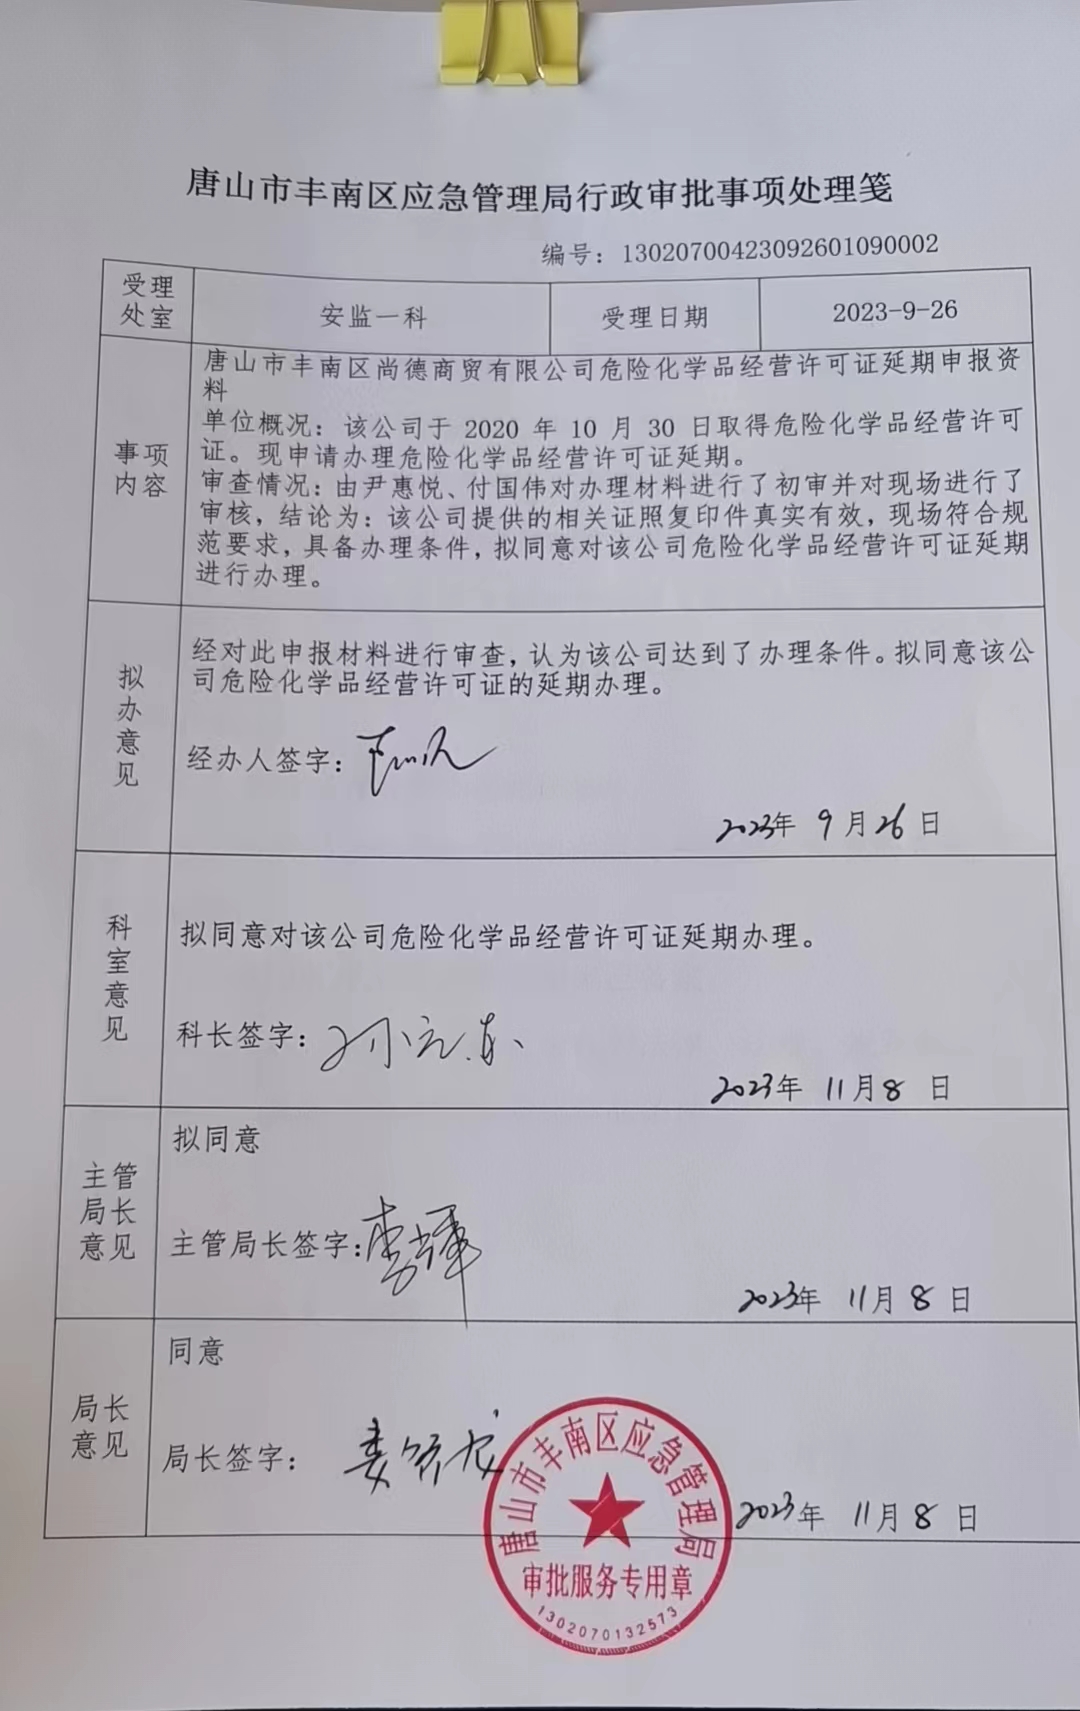 唐山市丰南区应急管理局行政审批事项处理笺
编号：13020700423092601090002
受理
处室
安监一科
受理日期
2023-9-26
事项
内容
唐山市丰南区尚德商贸有限公司危险化学品经营许可证延期申报资
料
单位概况：该公司于 2020 年 10 月 30 日取得危险化学品经营许可
证。现申请办理危险化学品经营许可证延期。
审查情况：由尹惠悦、付国伟对办理材料进行了初审并对现场进行了
审核，结论为：该公司提供的相关证照复印件真实有效，现场符合规
范要求，具备办理条件，拟同意对该公司危险化学品经营许可证延期
进行办理。
拟
办
意
见
经对此申报材料进行审查，认为该公司达到了办理条件。拟同意该公
司危险化学品经营许可证的延期办理。
经办人签字：
2023年 9月26日
科
室
意
见
拟同意对该公司危险化学品经营许可证延期办理。
科长签字：
2023年 11月8日
主管
局长
意见
拟同意
主管局长签字：
2023年 11月8日
局长
意见
同意
局长签字：
2023年 11月8日
唐山市丰南区应急管理局
审批服务专用章
1302070132573